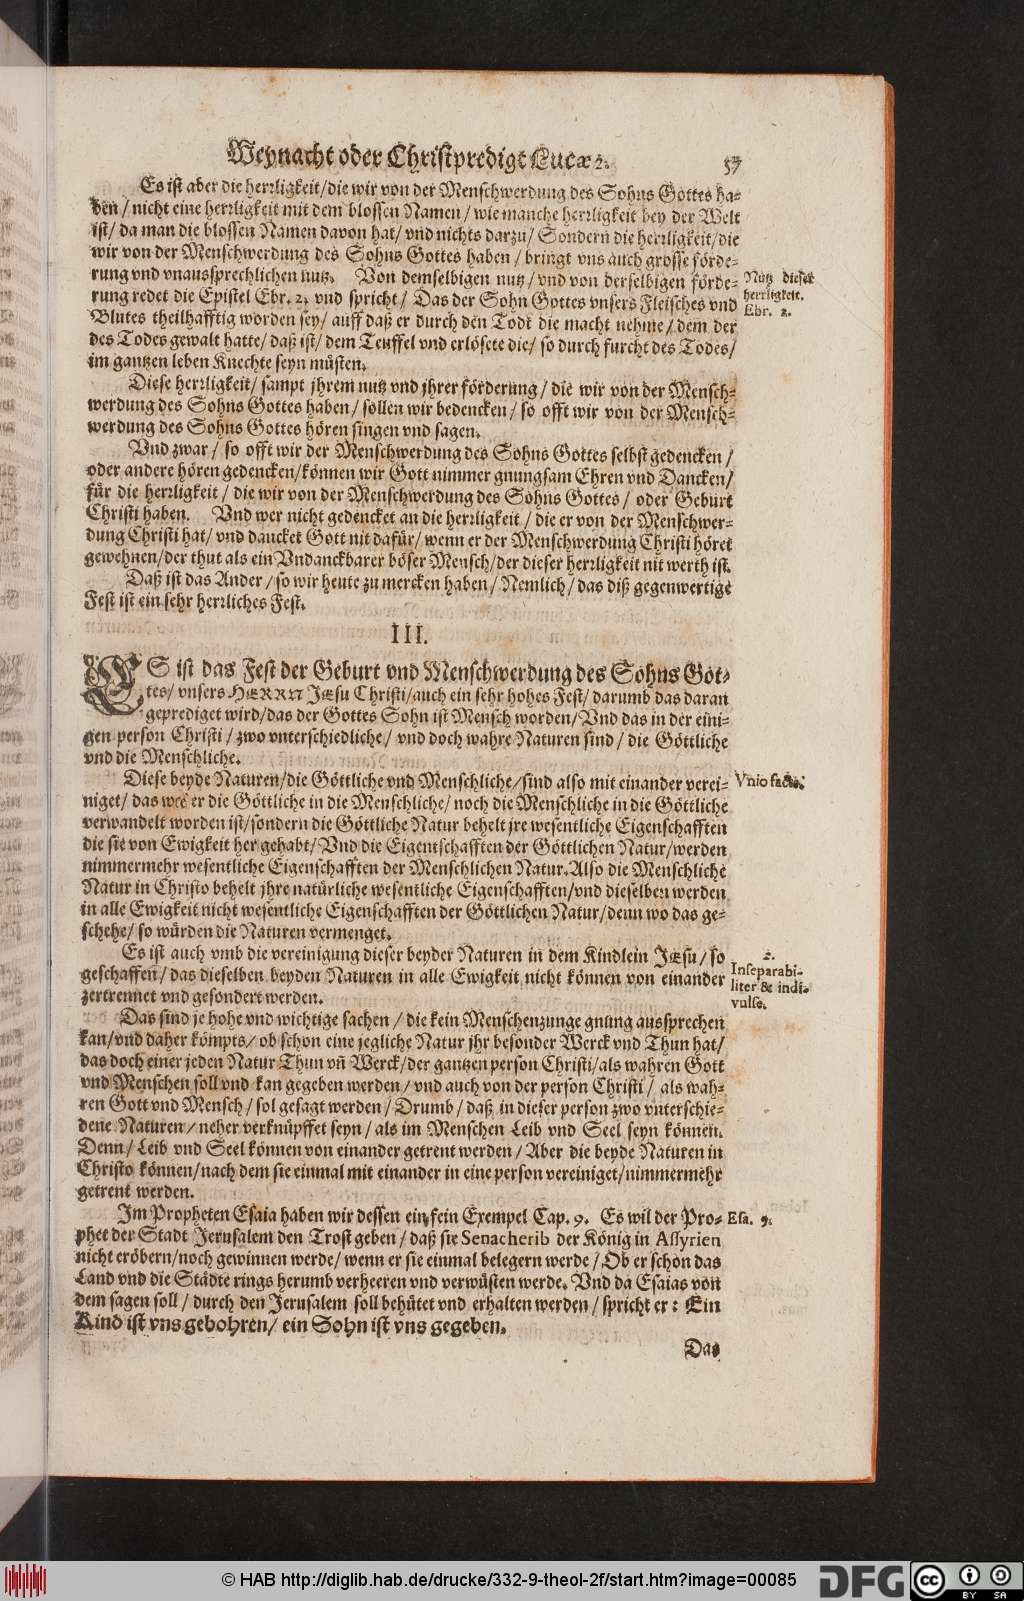 Weynacht oder Christpredigt Lucæ 2. 57
Es ist aber die herrligkeit/die wir von der Menschwerdung des Sohns Gottes ha-
ben / nicht eine herrligkeit mit dem blossen Namen / wie manche herrligkeit bey der Welt
ist/ da man die blossen Namen davon hat/ vnd nichts darzu/ Sondern die herrligkeit/die
wir von der Menschwerdung des Sohns Gottes haben / bringt vns auch grosse förde-
rung vnd vnaussprechlichen nutz. Von demselbigen nutz / vnd von derselbigen förde-
rung redet die Epistel Ebr. 2. vnd spricht / Das der Sohn Gottes vnsers Fleisches vnd
Blutes theilhafftig worden sey/ auff daß er durch den Todt die macht nehme / dem der
des Todes gewalt hatte/ daß ist/ dem Teuffel vnd erlösete die/ so durch furcht des Todes/
im gantzen leben Knechte seyn müsten.
Nutz dieser
herrligkeit.
Ebr. 2.
Diese herrligkeit/ sampt jhrem nutz vnd jhrer förderung / die wir von der Mensch-
werdung des Sohns Gottes haben / sollen wir bedencken / so offt wir von der Mensch-
werdung des Sohns Gottes hören singen vnd sagen.
Vnd zwar / so offt wir der Menschwerdung des Sohns Gottes selbst gedencken /
oder andere hören gedencken/können wir Gott nimmer gnungsam Ehren vnd Dancken/
für die herrligkeit / die wir von der Menschwerdung des Sohns Gottes / oder Geburt
Christi haben. Vnd wer nicht gedencket an die herrligkeit / die er von der Menschwer-
dung Christi hat/ vnd dancket Gott nit dafür/ wenn er der Menschwerdung Christi höret
gewehnen/der thut als ein Vndanckbarer böser Mensch/der dieser herrligkeit nit werth ist.
Daß ist das Ander / so wir heute zu mercken haben / Nemlich / das diß gegenwertige
Fest ist ein sehr herrliches Fest.
III.
ES ist das Fest der Geburt vnd Menschwerdung des Sohns Got-
tes/ vnsers HERRN JEsu Christi/auch ein sehr hohes Fest/ darumb das daran
geprediget wird/das der Gottes Sohn ist Mensch worden/ Vnd das in der eini-
gen person Christi / zwo vnterschiedliche / vnd doch wahre Naturen sind / die Göttliche
vnd die Menschliche.
Diese beyde Naturen/die Göttliche vnd Menschliche/sind also mit einander verei-
niget/ das weder die Göttliche in die Menschliche/ noch die Menschliche in die Göttliche
verwandelt worden ist/sondern die Göttliche Natur behelt jre wesentliche Eigenschafften
die sie von Ewigkeit her gehabt/ Vnd die Eigentschafften der Göttlichen Natur/werden
nimmermehr wesentliche Eigenschafften der Menschlichen Natur. Also die Menschliche
Natur in Christo behelt jhre natürliche wesentliche Eigenschafften/vnd dieselben werden
in alle Ewigkeit nicht wesentliche Eigenschafften der Göttlichen Natur/denn wo das ge-
schehe/ so würden die Naturen vermenget.
Vnio facta.
Es ist auch vmb die vereinigung dieser beyder Naturen in dem Kindlein JEsu / so
geschaffen / das dieselben beyden Naturen in alle Ewigkeit nicht können von einander
zertrennet vnd gesondert werden.
2.
Inseparabi-
liter & indi-
vulse.
Das sind je hohe vnd wichtige sachen / die kein Menschenzunge gnung aussprechen
kan/vnd daher kömpts/ ob schon eine jegliche Natur jhr besonder Werck vnd Thun hat/
das doch einer jeden Natur Thun vñ Werck/der gantzen person Christi/als wahren Gott
vnd Menschen soll vnd kan gegeben werden / vnd auch von der person Christi / als wah-
ren Gott vnd Mensch / sol gesagt werden / Drumb / daß in dieser person zwo vnterschie-
dene Naturen / neher verknüpffet seyn / als im Menschen Leib vnd Seel seyn können.
Denn / Leib vnd Seel können von einander getrent werden / Aber die beyde Naturen in
Christo können/nach dem sie einmal mit einander in eine person vereiniget/nimmermehr
getrent werden.
Im Propheten Esaia haben wir dessen ein fein Exempel Cap. 9. Es wil der Pro-
phet der Stadt Jerusalem den Trost geben / daß sie Senacherib der König in Assyrien
nicht eröbern/noch gewinnen werde/ wenn er sie einmal belegern werde / Ob er schon das
Land vnd die Städte rings herumb verheeren vnd verwüsten werde. Vnd da Esaias von
dem sagen soll / durch den Jerusalem soll behütet vnd erhalten werden / spricht er : Ein
Kind ist vns gebohren/ ein Sohn ist vns gegeben.
Esa. 9.
Das
© HAB http://diglib.hab.de/drucke/332-9-theol-2f/start.htm?image=00085
DFG
cc BY SA